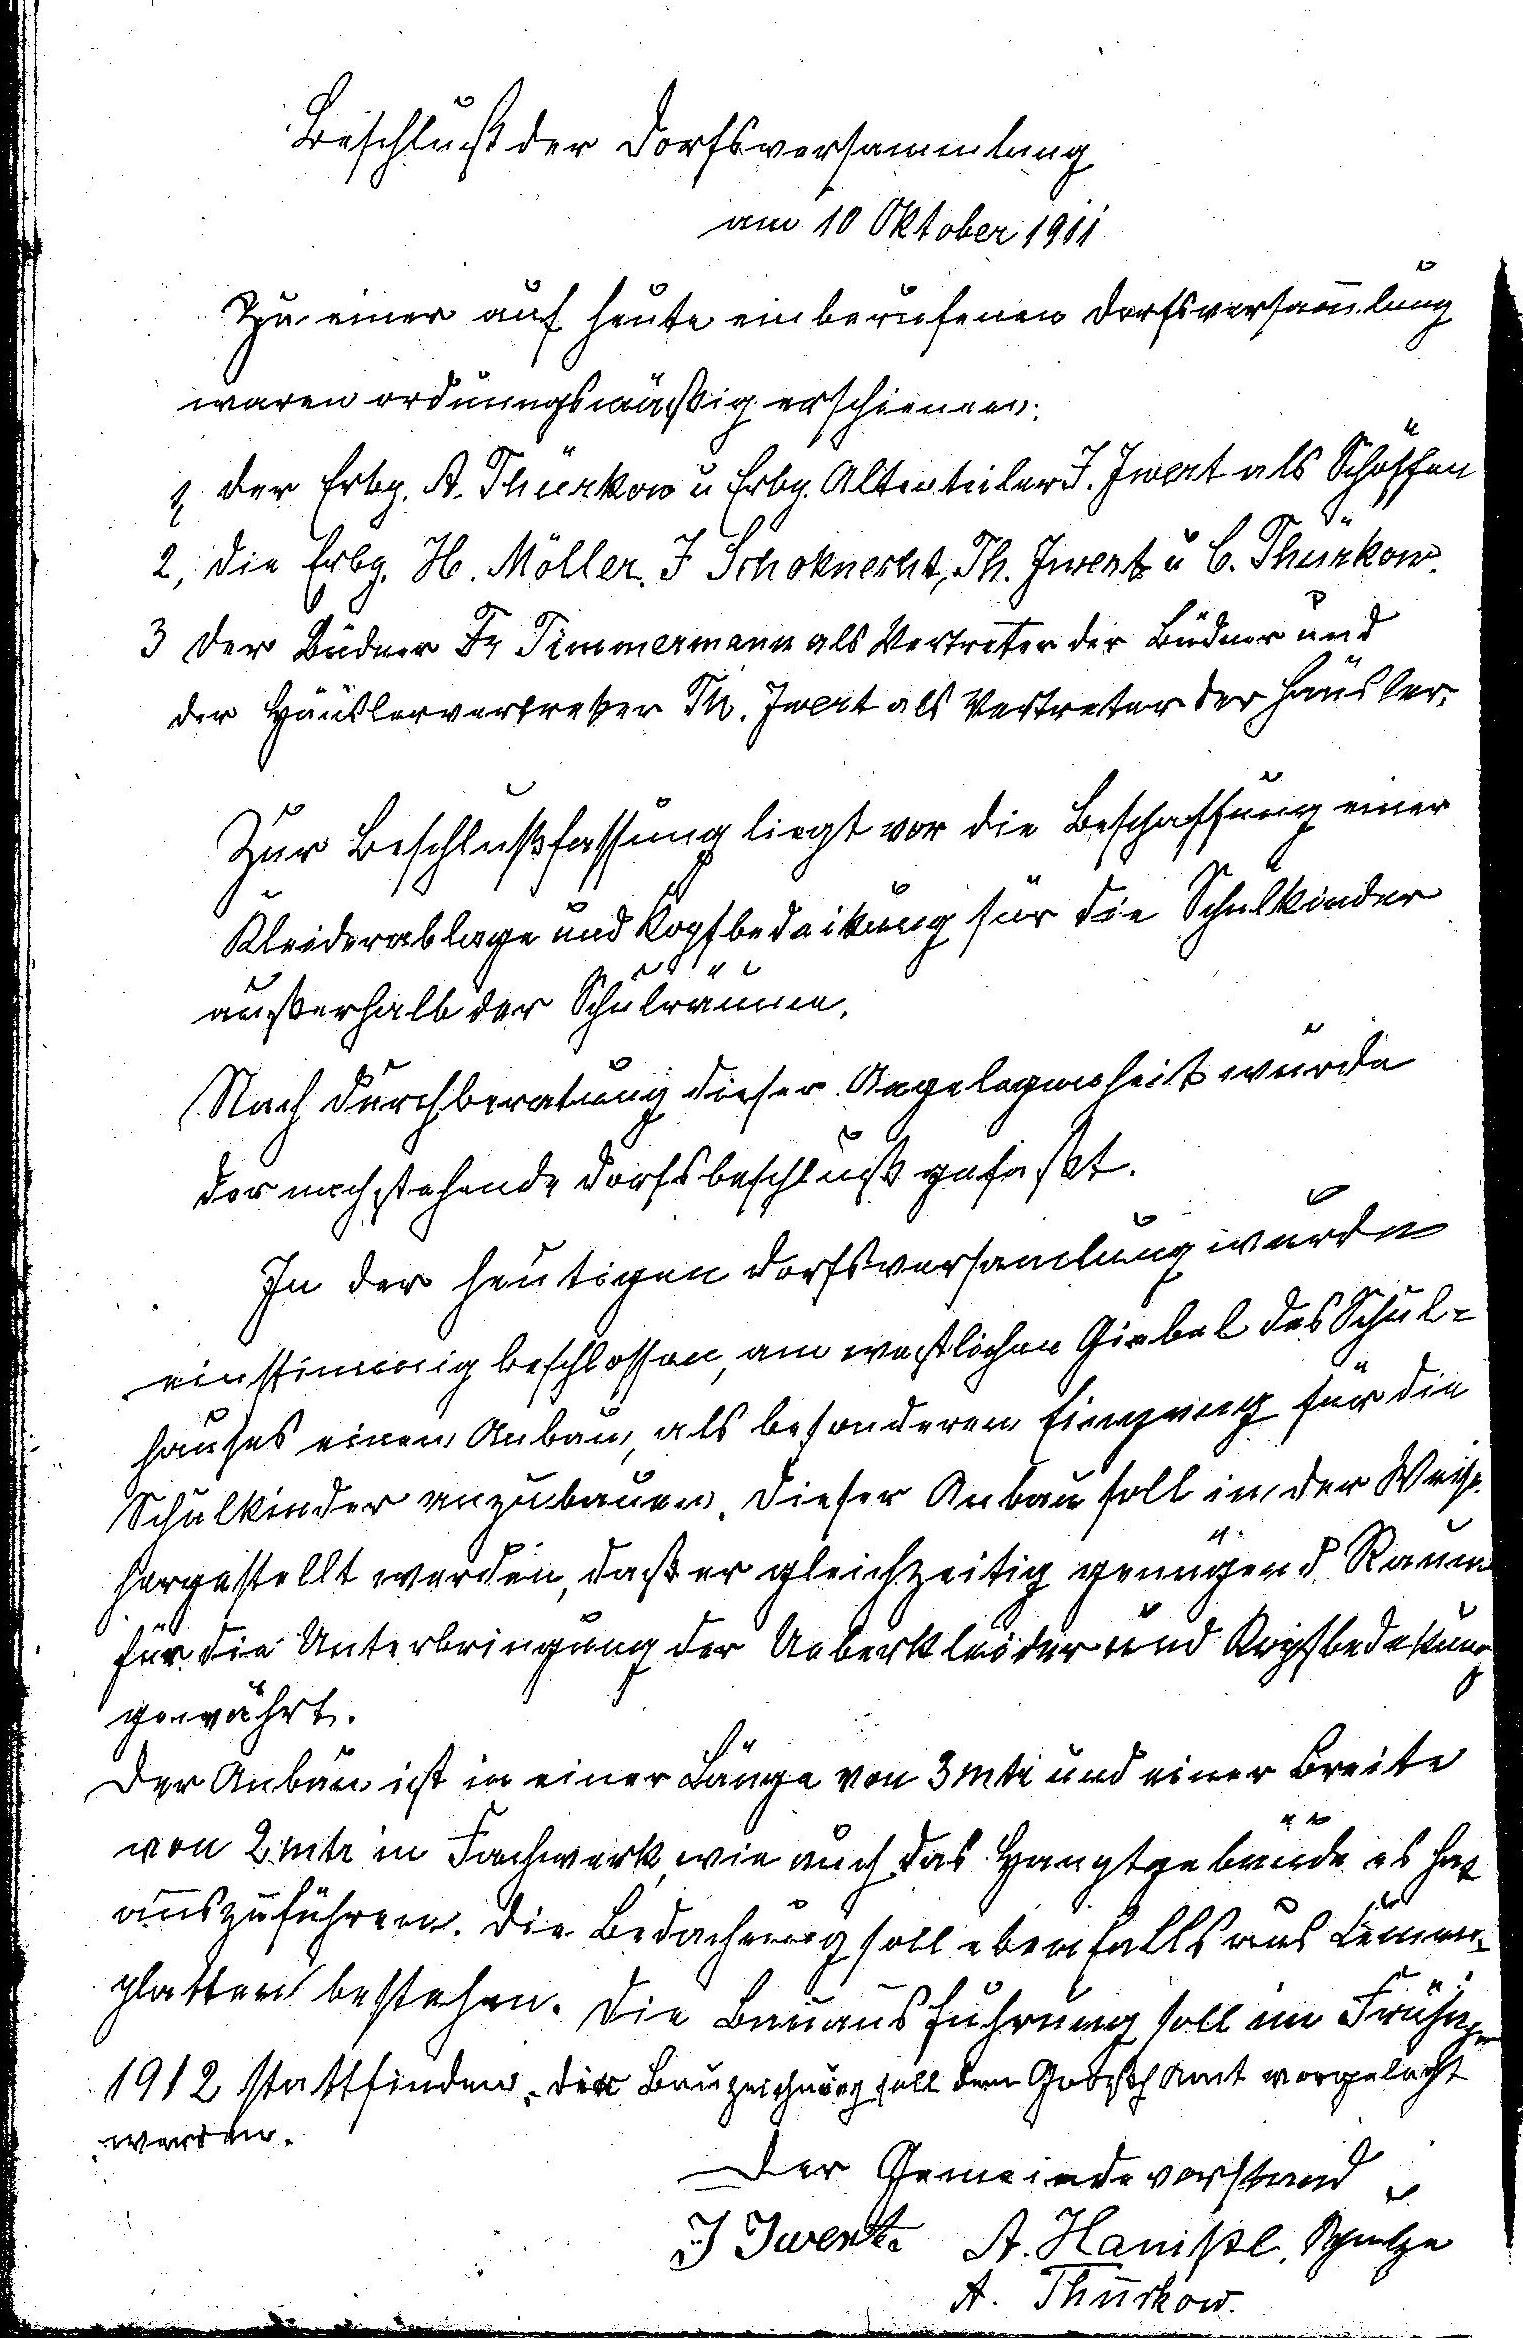 Beschluß der Dorfsversammlung
am 10 Oktober 1911
Zu einer auf heute einberufenen Dorfsversam̄lung
waren ordnungsmäßig erschienen:
1, der Erbp. A. Thürkow u Erbp. Altenteiler J. Iwert als Schöffen
2, die Erbp. H. Möller. J Schoknecht, Th. Iwert u C. Thürkow.
3 der Büdner Fr Timmermann als Vertreter der Büdner und
der Häuslervertreter Th. Iwert als Vertreter der Häusler.
Zur Beschlußfassung liegt vor die Beschaffung einer
Kleiderablage und Kopfbedeikung für die Schulkinder
außerhalb der Schulräume.
Nach Durchberatung dieser Angelegenheit wurde
der nachstehende Dorfsbeschluß gefaßt.
In der heutigen Dorfsversamlung wurde
einstimmig beschlossen, am westlichen Giebel des Schul=
hauses einen Anbau, als besonderen Eingang für die
Schulkinder anzubauen. Dieser Anbau soll in der Weise
hergestellt werden, daß er gleichzeitig genügend Raum
für die Unterbringung der Ueberkleider und Kopfbedekung
gewährt.
Der Anbau ist in einer Länge von 3 mtr und einer Breite
von 2 mtr in Fachwerk, wie auch das Hauptgebäude es hat
auszuführen. Die Bedachung soll ebenfalls aus
platten bestehen. Die Bauausführung soll im
1912 stattfinden. Die Bauzeichnung soll dem Amt vorgelegt
werden.
Der Gemeindevorstand
J Iwert. A. Hanißl, Schulze
A. Thürkow.